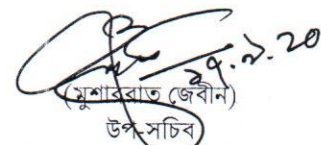 ২৭.৯.২০
(মুশাররাত জেবীন)
উপ-সচিব